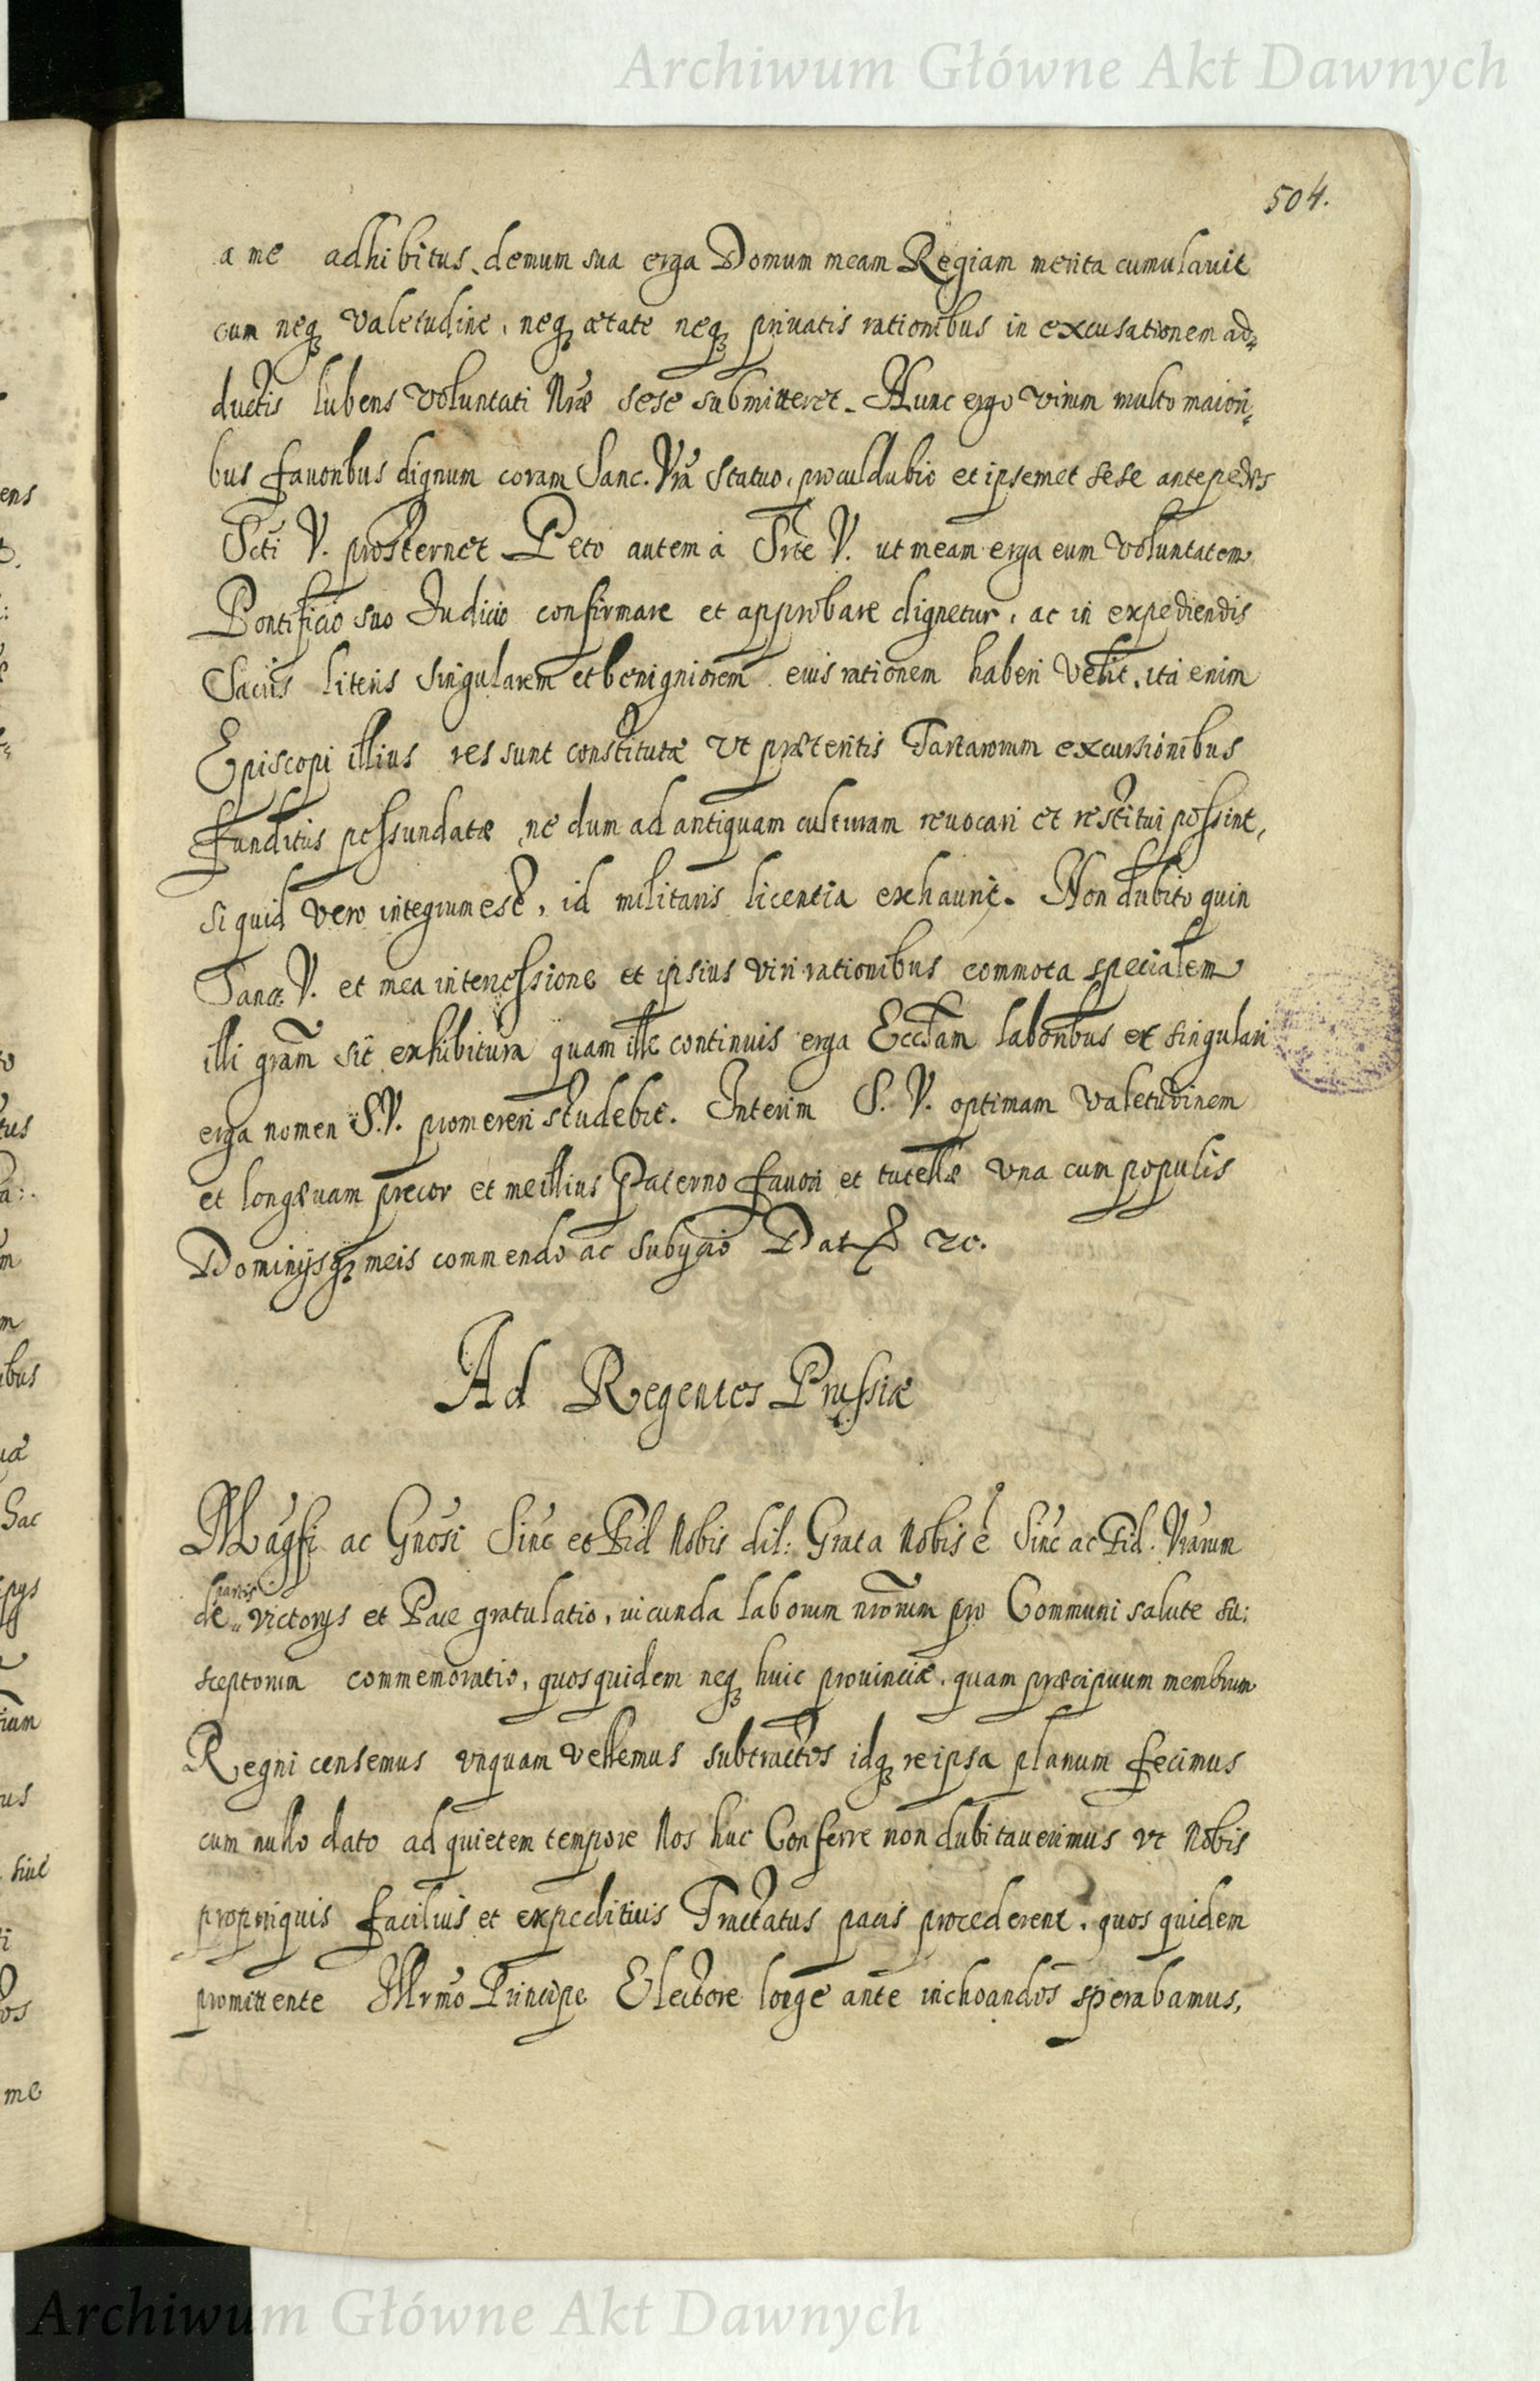 Archiwum Główne Akt Dawnych
504.
a me adhibitus, demum sua erga Domum meam Regiam merita cumulavit
cum neq₃ valetudine, neq₃ ætate neq₃ privatis rationibus in excusationem ad⸗
ductis lubens voluntati Nræ sese submitteret. Hunc ergo virum multo maiori⸗
bus favoribus dignum coram Sanc. Vra statuo, proculdubio et ipsemet sese ante pedes
Scti V. prosternet Peto autem à Ste V. ut meam erga eum voluntatem
Pontificio suo Iudicio confirmare et approbare dignetur, ac in expediendis
Sacris literis singularem et benigniorem eius rationem haberi velit, ita enim
Episcopi illius res sunt constitutæ ut præteritis Tartarorum excursionibus
funditus possundatæ ne dum ad antiquam culturam revocari et restitui possint,
si quid vero integrum esset, id militaris licentia exhaurit. Non dubito quin
Sanct. V. et mea intercessione et ipsius viri rationibus commota specialem
illi gram sit exhibitura quam ille continuis erga Eccłam laboribus et singulari
erga nomen S.V. promereri studebit. Interim S. V. optimam valetudinem
et longævam precor et me illius Paterno favori et tutellæ una cum populis
Dominijsq₃ meis commendo ac subijcio Dat ꝛc.
Ad Regentes Prussiæ
Magfi ac Gnosi Sinc et Fid Nobis dil: Grata Nobis ẽ Sinc ac Fid. Vrarum
de partis victorijs et Pace gratulatio, iucunda laborum nrorum pro Communi salute su:
sceptorum commemoratio, quos quidem neq₃ huic provinciæ, quam præcipuum membrum
Regni censemus unquam vellemus subtractos idq₃ reipsa planum fecimus
cum nullo dato ad quietem tempore Nos huc Conferre non dubitaverimus ut Nobis
propinquis facilius et expeditius Tractatus pacis procederent, quos quidem
promittente Illrmo Principe Electore longe ante inchoandos sperabamus,
Archiwum Główne Akt Dawnych